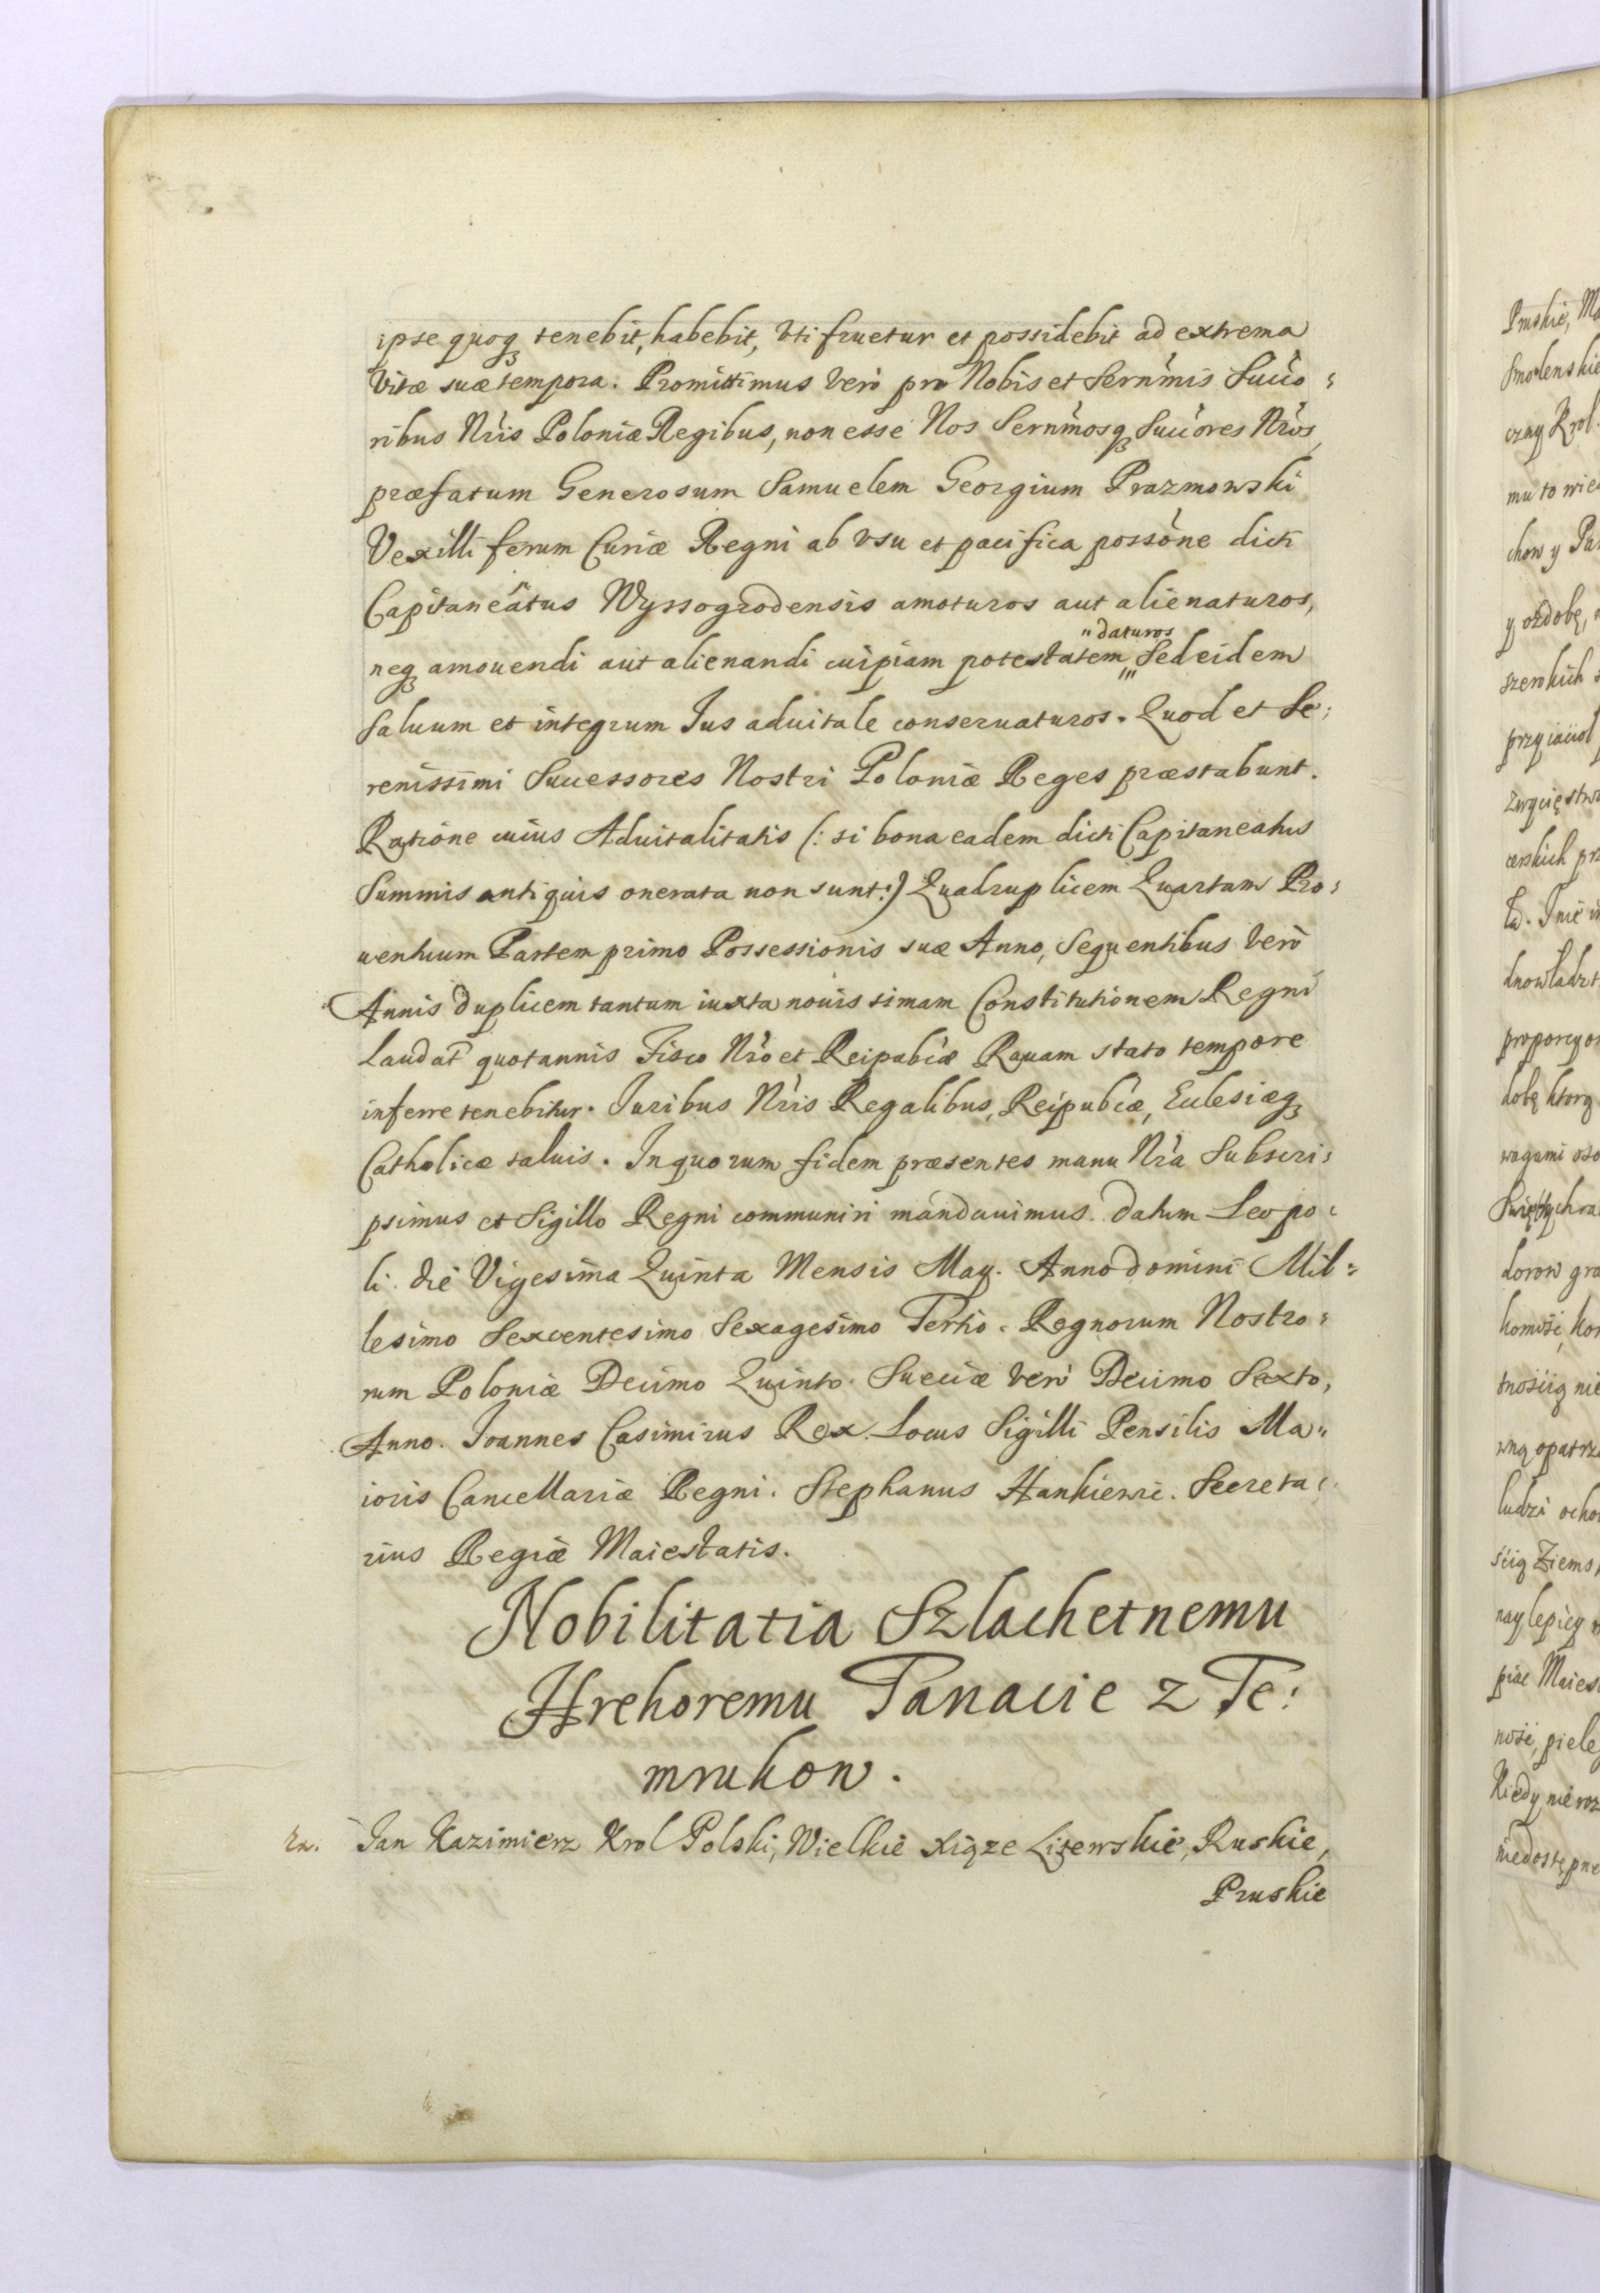 ipse quoq tenebit, habebit, Vti fruetur et possidebit ad extrema
Vitæ suæ tempora. Promittimus Verò pro Nobis et Sernmis Succo:
ribus Nris Poloniæ Regibus, non esse Nos Sernmosq Succores Nros,
præfatum Generosum Samuelem Georgium Prazmowski
Vexilli ferum Curiæ Regni ab vsu et pacifica possone dicti
Capitaneatus Wyssogrodensis amoturos aut alienaturos,
neq amouendi aut alienandi cuipiam potestatem "daturos Sed eidem
saluum et integrum Jus aduitale conseruaturos. Quod et Se:
renissimi Successores Nostri Poloniæ Reges præstabunt.
Ratione cuius Aduitalitatis (: si bona eadem dicti Capitaneatus
Summis antiquis onerata non sunt:) Quadruplicem Quartam Pro:
uentuum Partem primo Possessionis suæ Anno, Sequentibus Verò
Annis duplicem tantum iuxta nouissimam Constitutionem Regni
Laudat quotannis Fisco Nro et Reipubcæ Rauam stato tempore
inferre tenebitur. Juribus Nris Regalibus, Reipubcæ, Ecclesiæq
Catholicæ saluis. In quorum fidem præsentes manu Nra Subscri:
psimus et Sigillo Regni communiri mandauimus. Datum Leopo:
li. die Vigesima Quinta Mensis May. Anno domini Mil:
lesimo Sexcentesimo Sexagesimo Tertio. Regnorum Nostro:
rum Poloniæ Decimo Quinto. Sueciæ Verò Decimo Sexto,
Anno. Joannes Casimirus Rex. Locus Sigilli Pensilis Ma"
ioris Cancellariæ Regni. Stephanus Hankiewic. Secreta:
rius Regiæ Maiestatis.
Nobilitatia Szlachetnemu
Hrehoremu Tanacie z Te:
mrukow.
Jan Kazimierz Krol Polski, Wielkie Xiąze Litewskie, Ruskie,
Pruskie